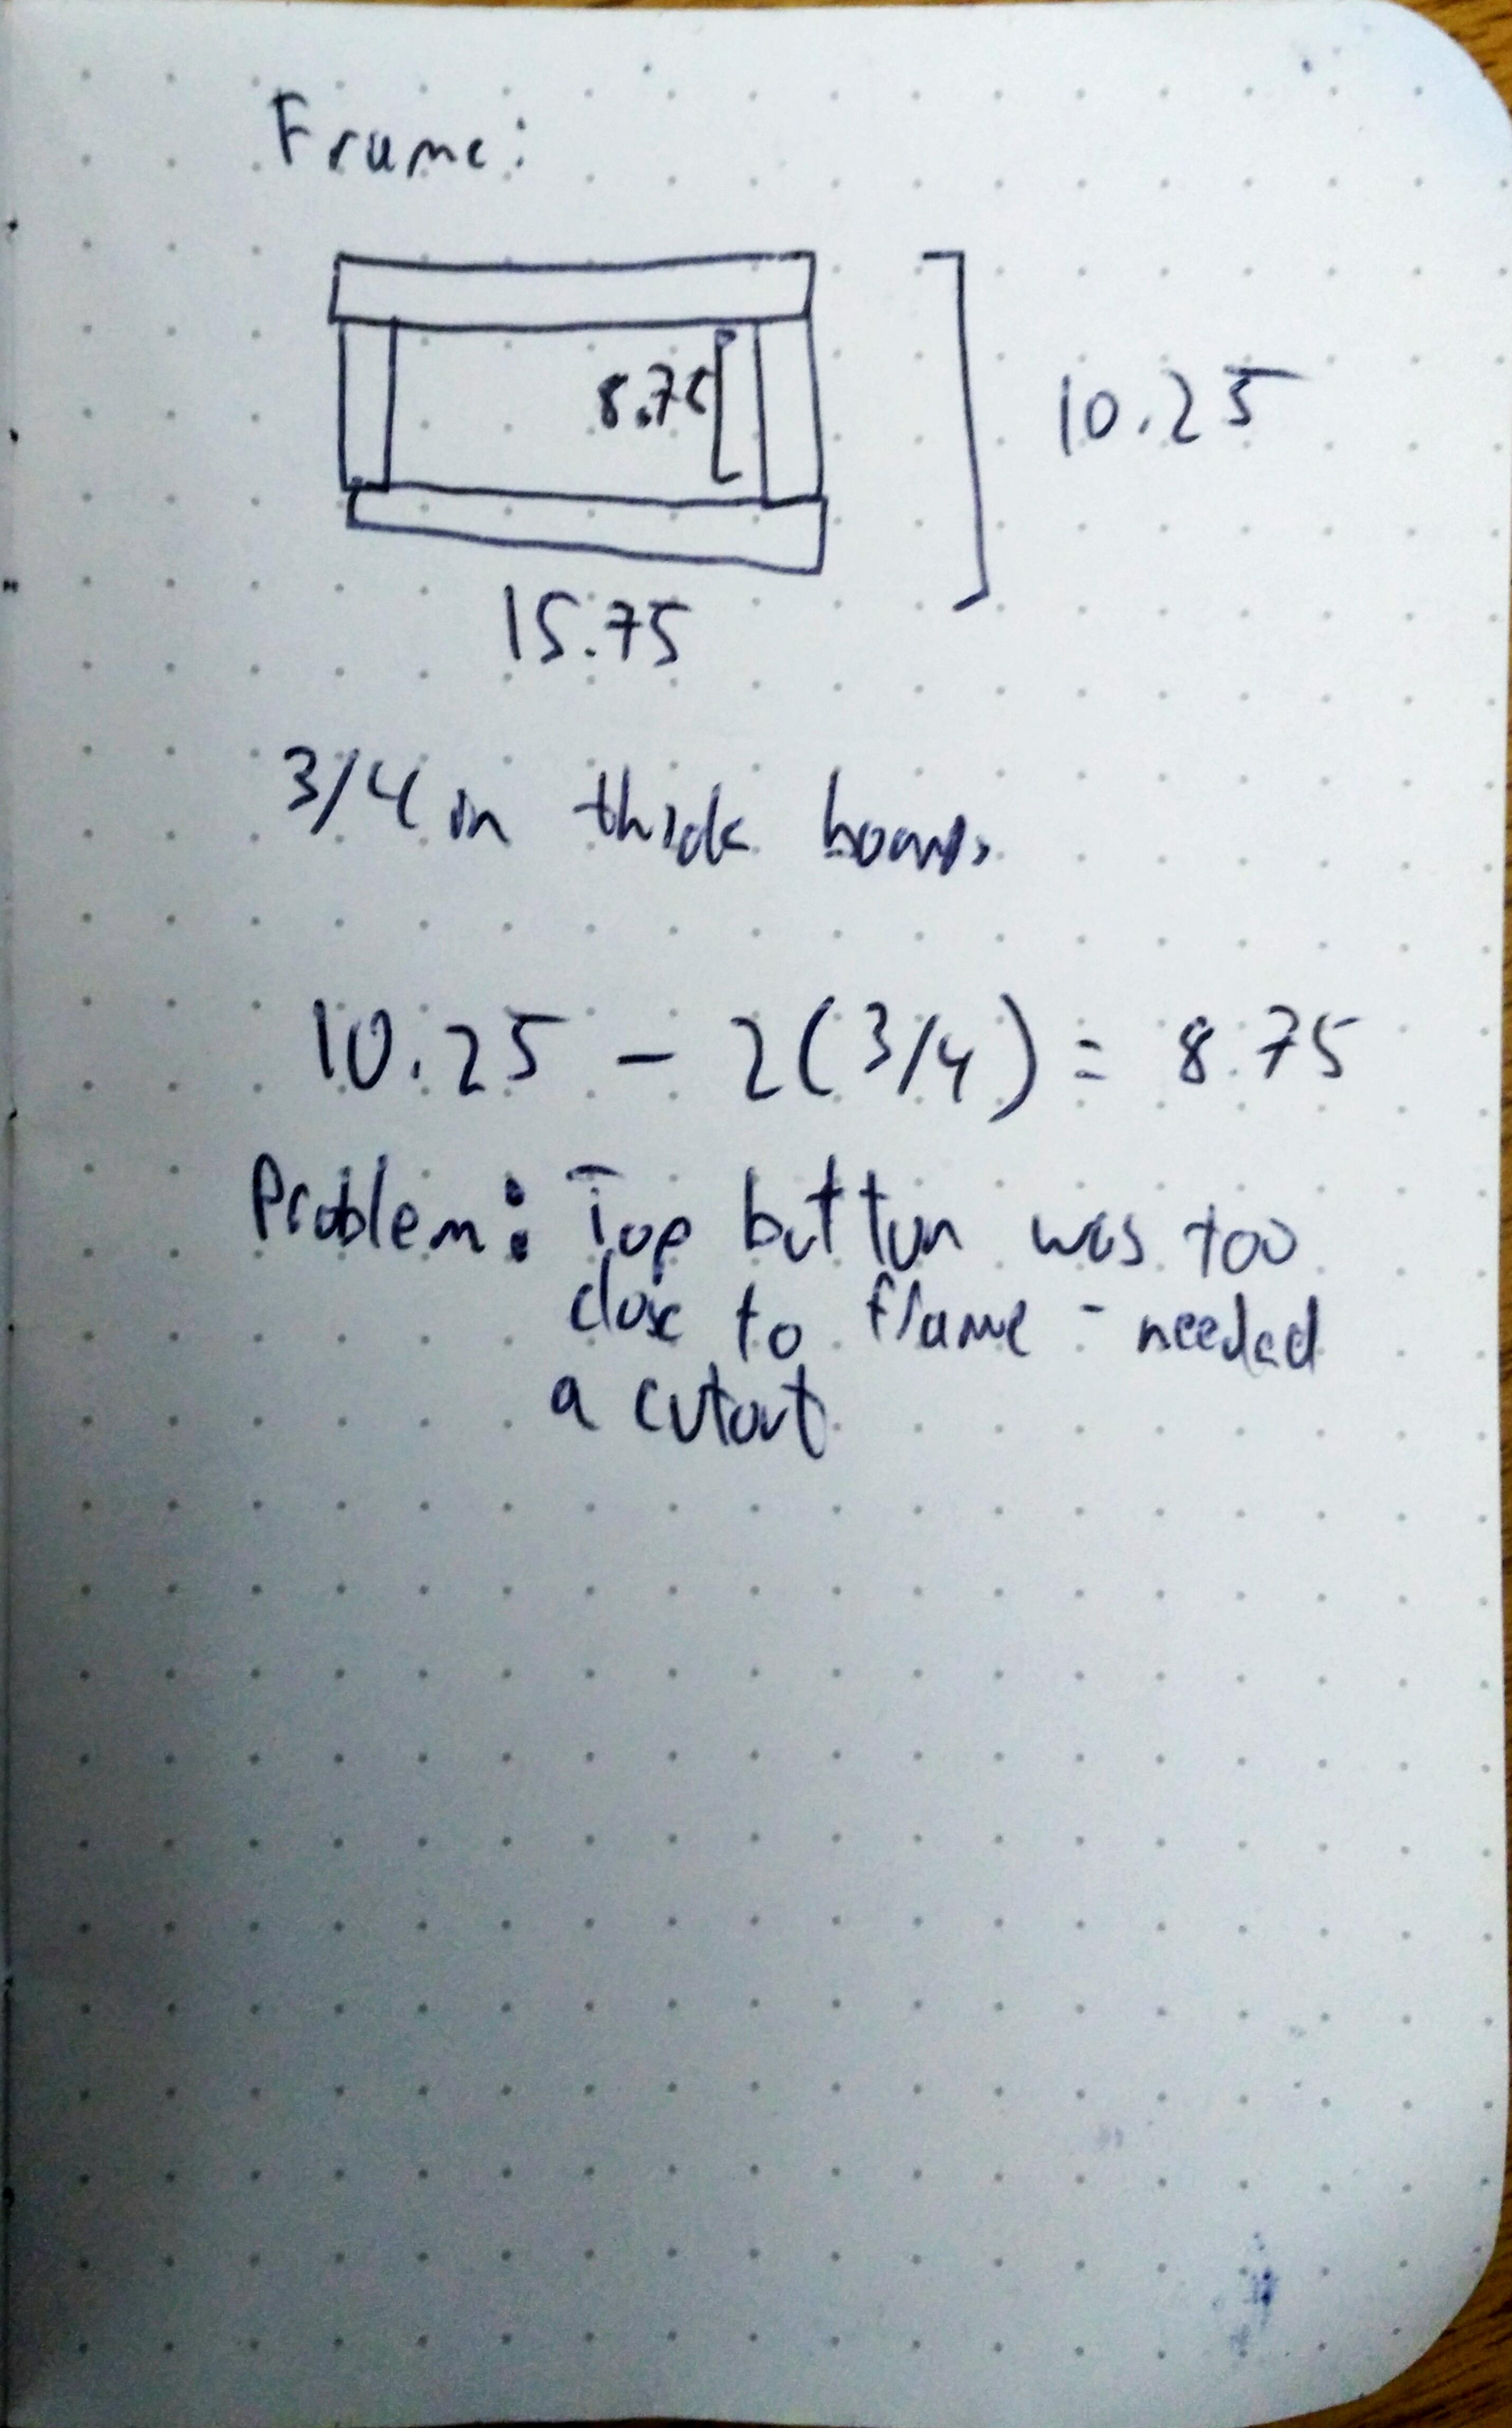 Frame:
8.75
10.25
15.75
3/4 in thick boards
10.25 - 2(3/4) = 8.75
Problem: Top button was too
close to frame - needed
a cutout